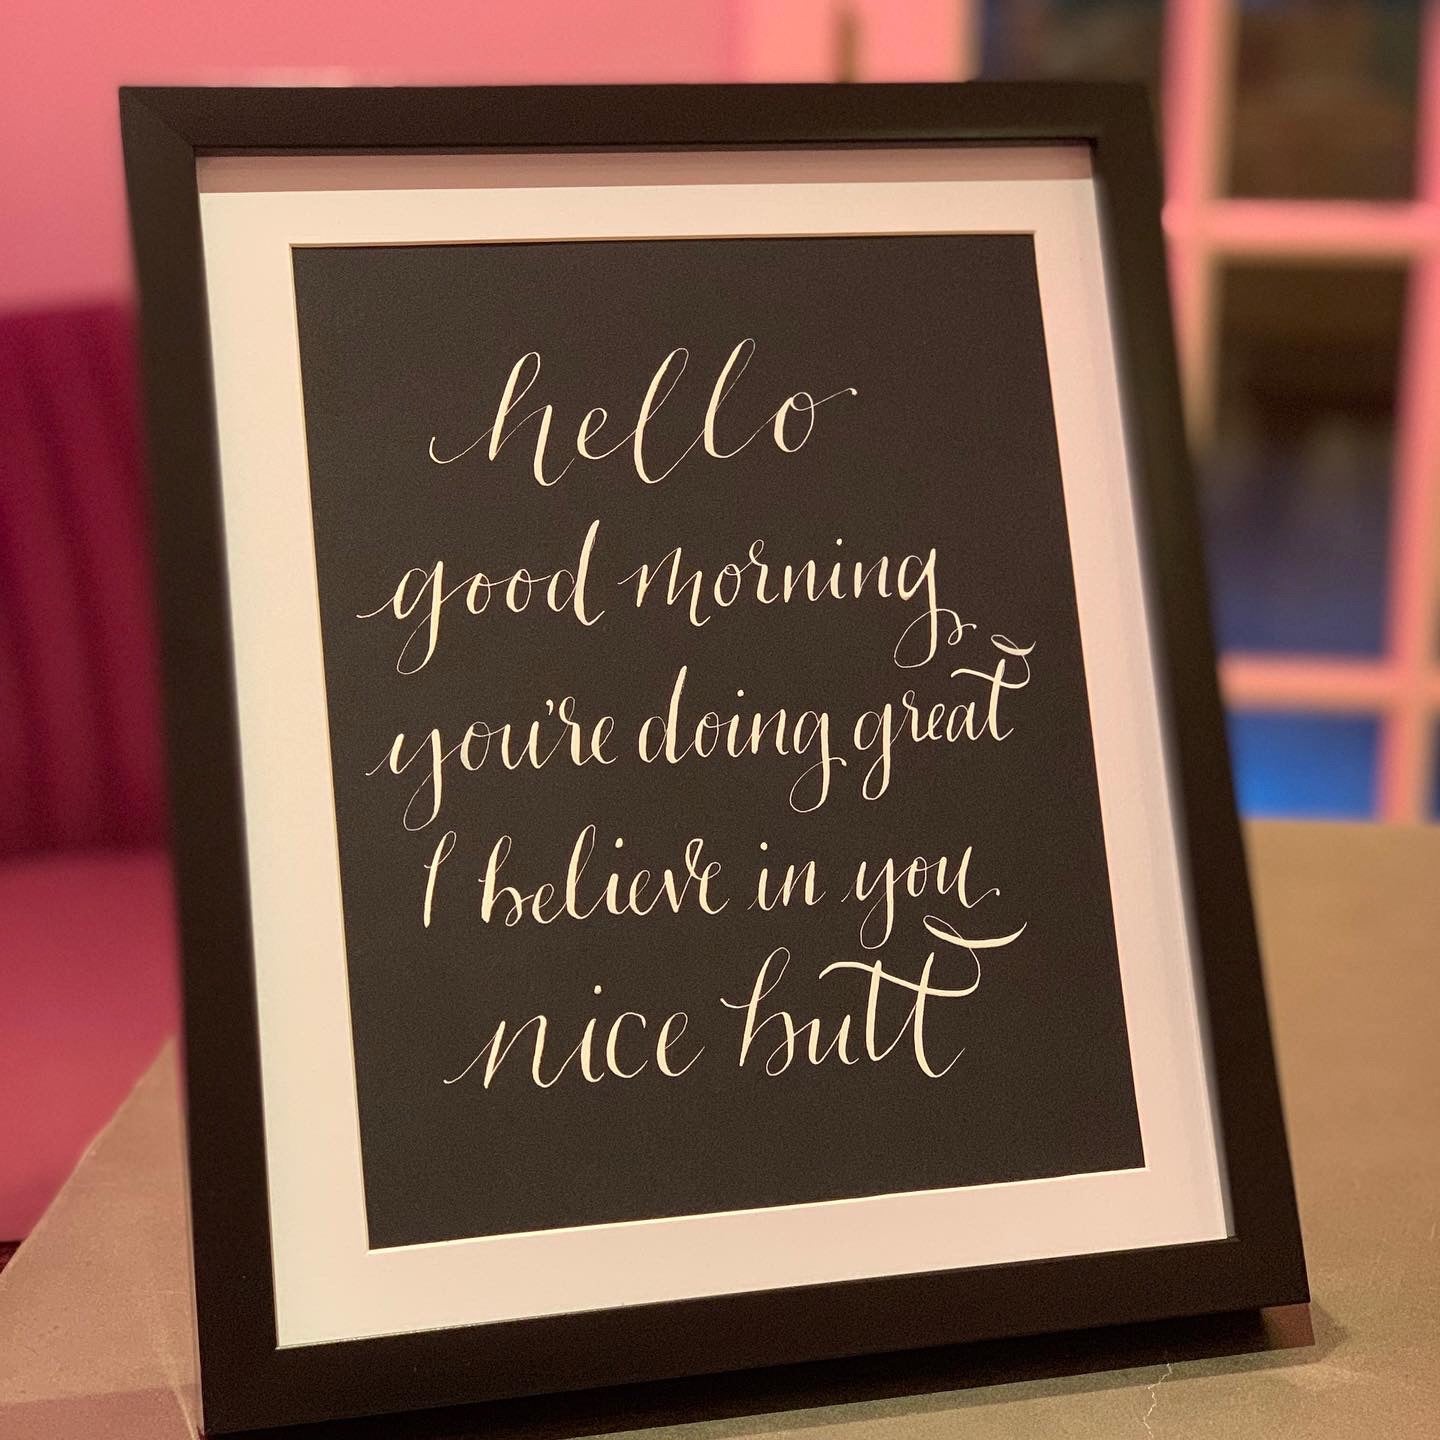 hello
good morning
you're doing great
I believe in you
nice butt